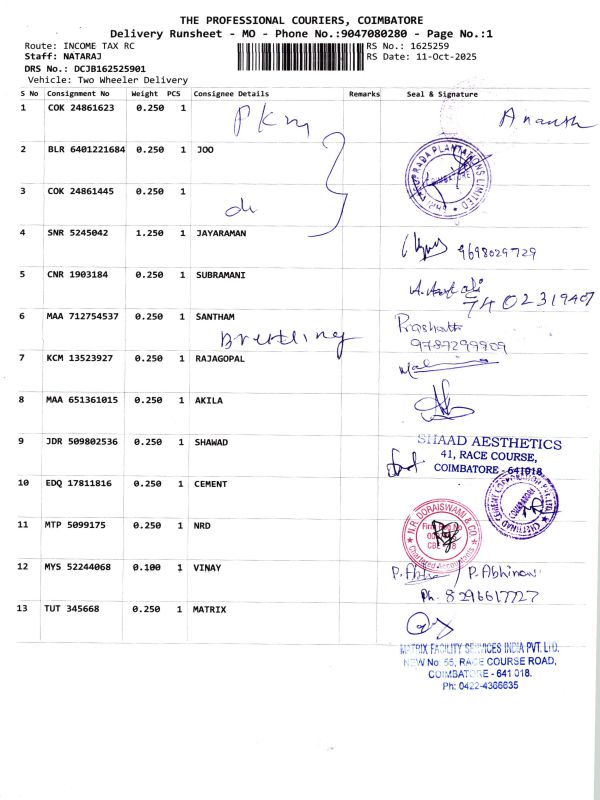 THE PROFESSIONAL COURIERS, COIMBATORE
Delivery Runsheet - MO - Phone No.:9047080280 - Page No.:1
Route: INCOME TAX RC RS No.: 1625259
Staff: NATARAJ RS Date: 11-Oct-2025
DRS No.: DCJB162525901
Vehicle: Two Wheeler Delivery
S No Consignment No Weight PCS Consignee Details Remarks Seal & Signature
1 COK 24861623 0.250 1 Pkm Ananth
2 BLR 6401221684 0.250 1 JOO
PLANTATIONS LIMITED
3 COK 24861445 0.250 1 do
4 SNR 5245042 1.250 1 JAYARAMAN 9698029729
5 CNR 1903184 0.250 1 SUBRAMANI
7402319407
6 MAA 712754537 0.250 1 SANTHAM Prashanth
Breitling 9789299909
7 KCM 13523927 0.250 1 RAJAGOPAL
8 MAA 651361015 0.250 1 AKILA
9 JDR 509802536 0.250 1 SHAWAD SHAAD AESTHETICS
41, RACE COURSE,
COIMBATORE - 641018
10 EDQ 17811816 0.250 1 CEMENT
CHETTINAD CEMENT CORPORATION PVT. LTD.
COIMBATORE
11 MTP 5099175 0.250 1 NRD
N.R. DORAISWAMI & CO.
Chartered Accountants
12 MYS 52244068 0.100 1 VINAY P. Abhinav
Ph. 8296617727
13 TUT 345668 0.250 1 MATRIX
MATRIX FACILITY SERVICES INDIA PVT. LTD.
NEW No. 55, RACE COURSE ROAD,
COIMBATORE - 641 018.
Ph: 0422-4366635